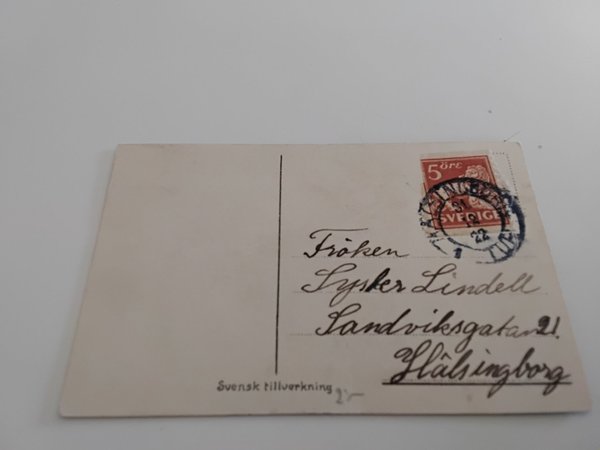 5 ÖRE
SVERIGE
HÄLSINGBORG
31
12
22
1
Fröken
Syster Lindell
Sandviksgatan 21.
Hälsingborg
Svensk tillverkning
2:-